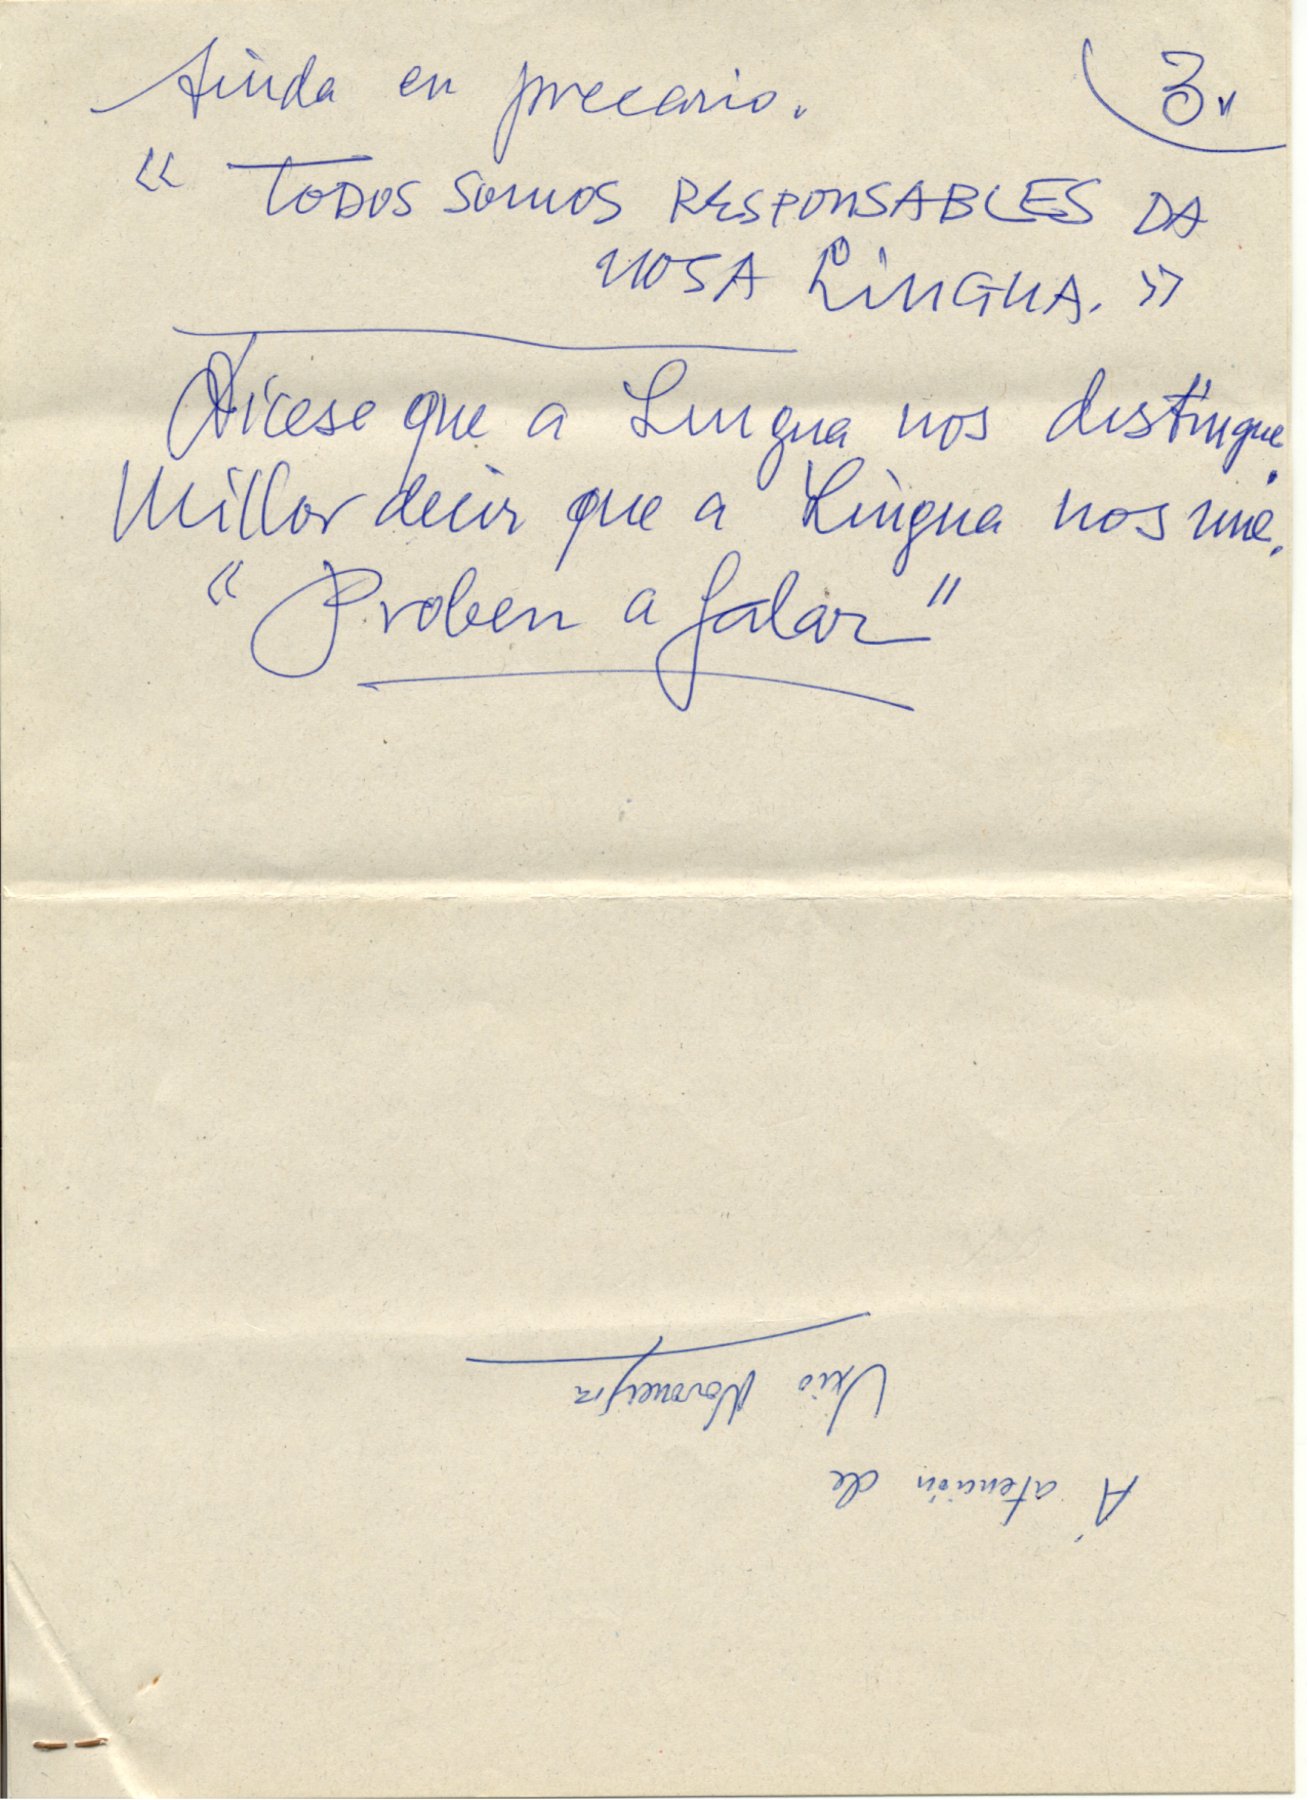 Ainda en precario.
3.
« TODOS SOMOS RESPONSABLES DA
NOSA LINGUA. »
Dícese que a Lingua nos distingue.
Millor decir que a Lingua nos une.
“ Proben a falar ”
Á atención de
Uxio Novoneyra